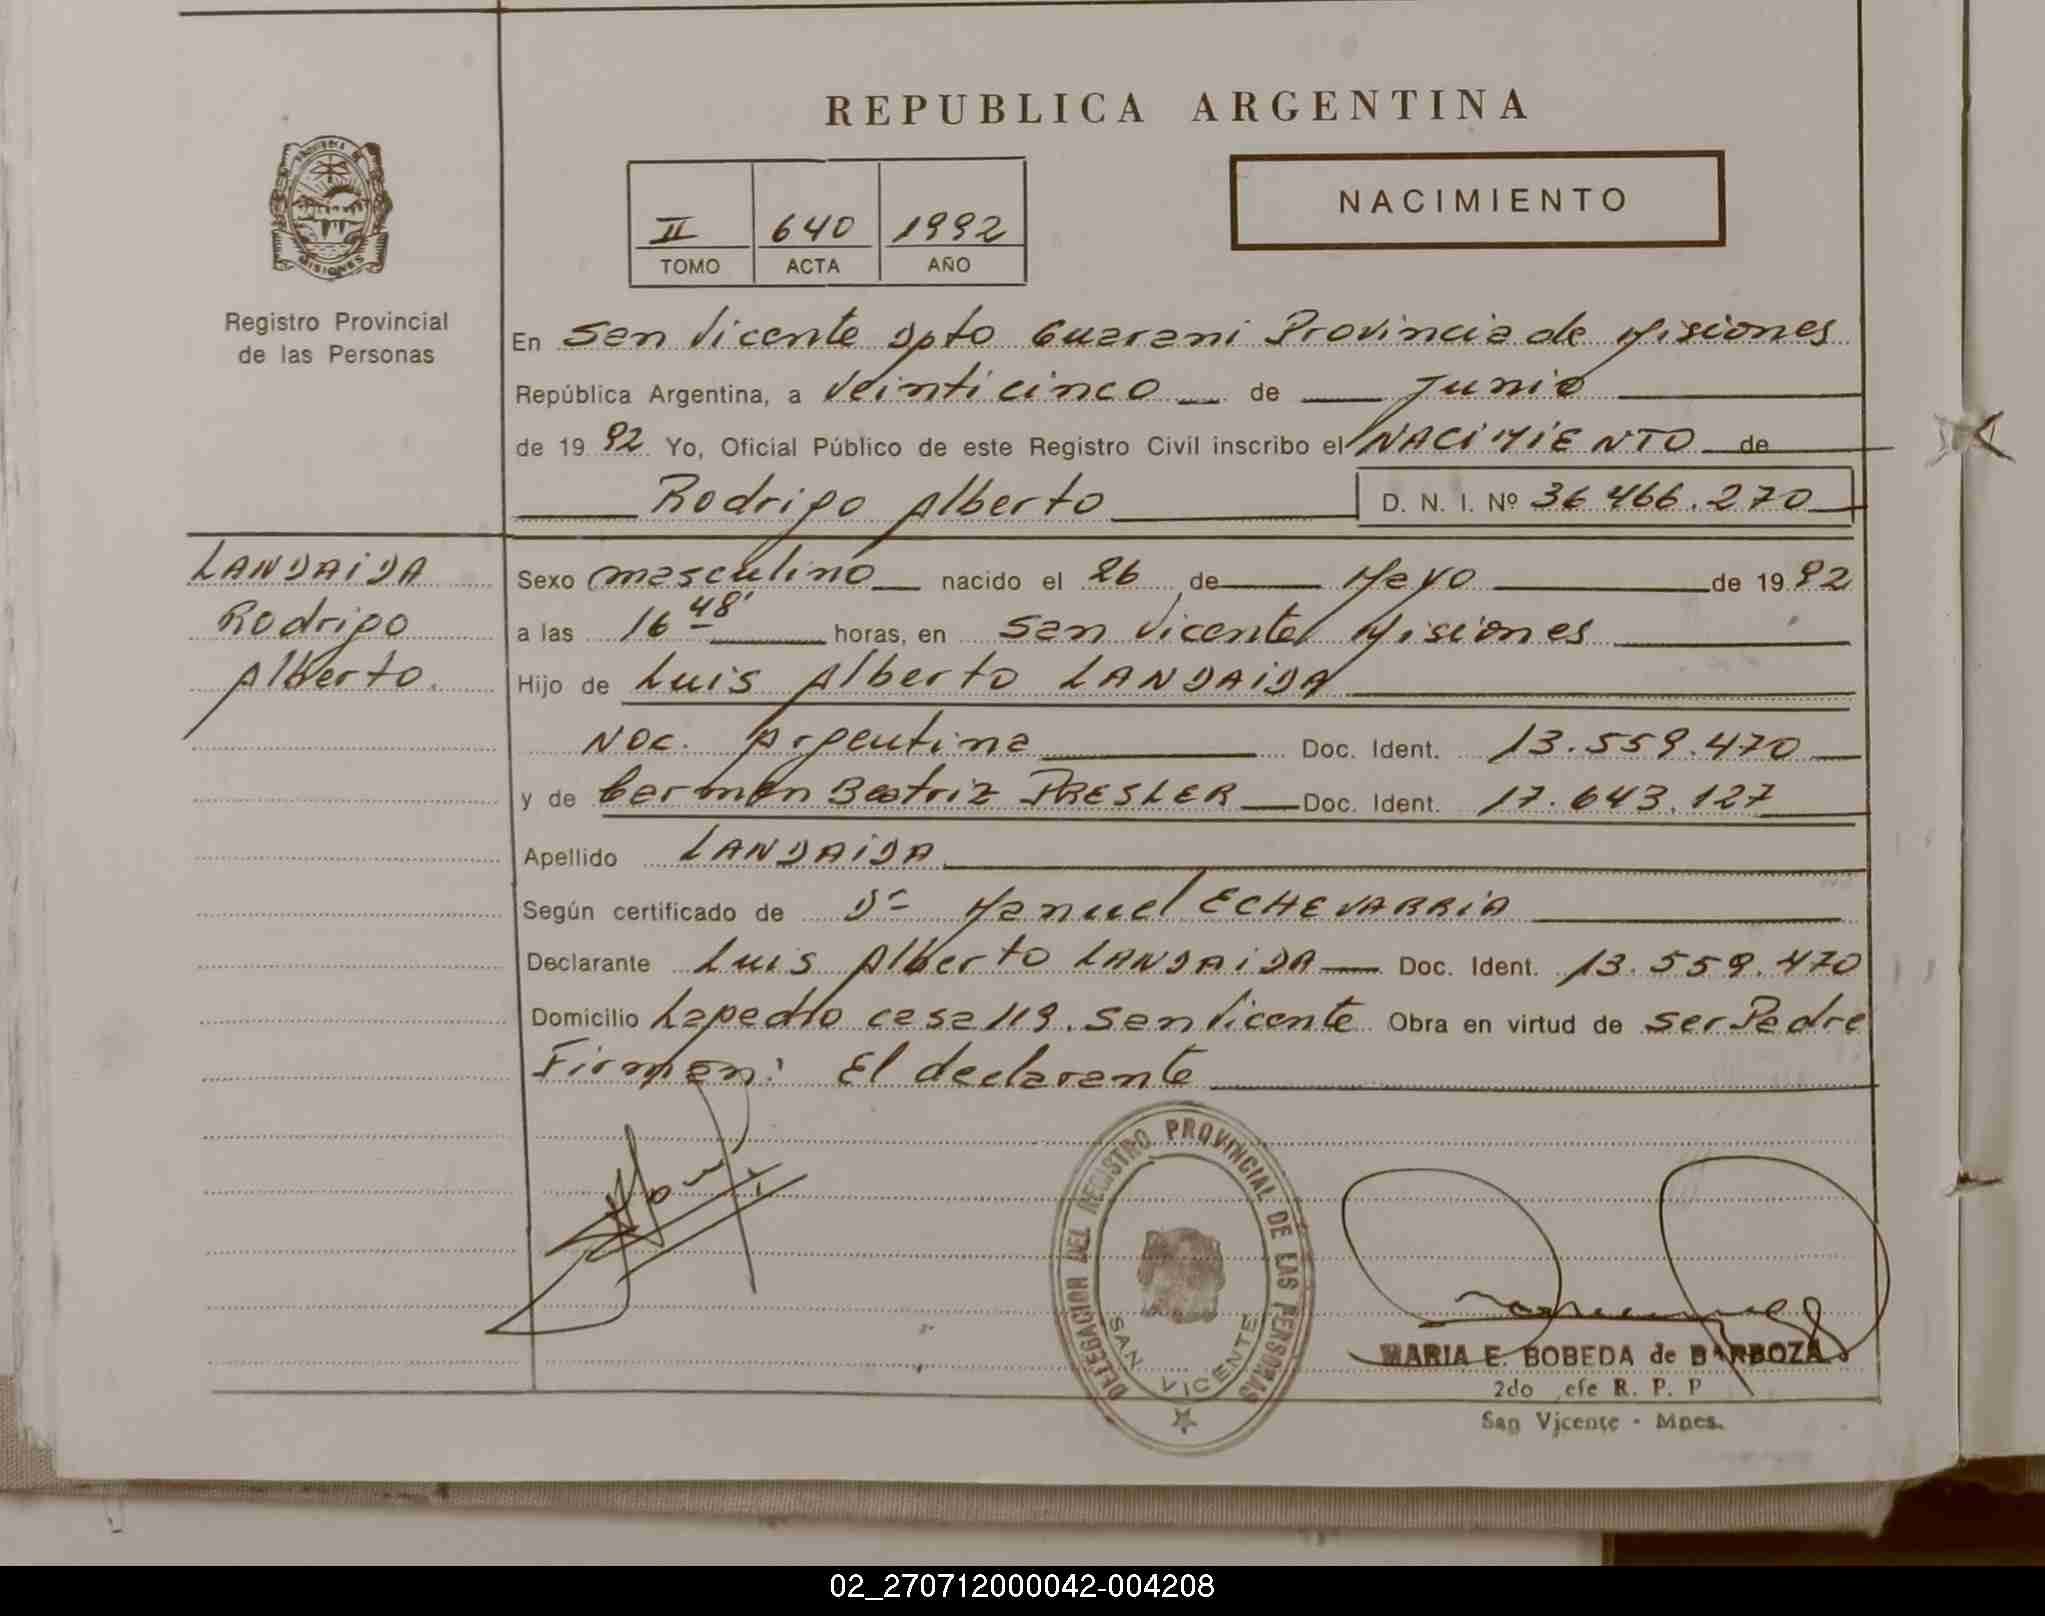 REPUBLICA ARGENTINA
NACIMIENTO
II 640 1992
TOMO ACTA AÑO
MISIONES
Registro Provincial
de las Personas
En San Vicente Dpto Guarani Provincia de Misiones
República Argentina, a Veinticinco de Junio
de 19 92 Yo, Oficial Público de este Registro Civil inscribo el NACIMIENTO de
Rodrigo Alberto D. N. I. Nº 36466.270
LANDAIDA
Rodrigo
Alberto.
Sexo masculino nacido el 26 de Mayo de 19 92
a las 16 48' horas, en San Vicente Misiones
Hijo de Luis Alberto LANDAIDA
Nac. Argentina Doc. Ident. 13.559.470
y de Carmen Beatriz PRESLER Doc. Ident. 17.643.127
Apellido LANDAIDA
Según certificado de Dr Manuel ECHEVARRIA
Declarante Luis Alberto LANDAIDA Doc. Ident. 13.559.470
Domicilio casa 119. San Vicente Obra en virtud de ser Padre
Firman: El declarante
DELEGACION DEL REGISTRO PROVINCIAL DE LAS PERSONAS
SAN VICENTE
MARIA E. BOBEDA de BARBOZA
2do efe R. P. P
San Vicente - Mnes.
02_270712000042-004208